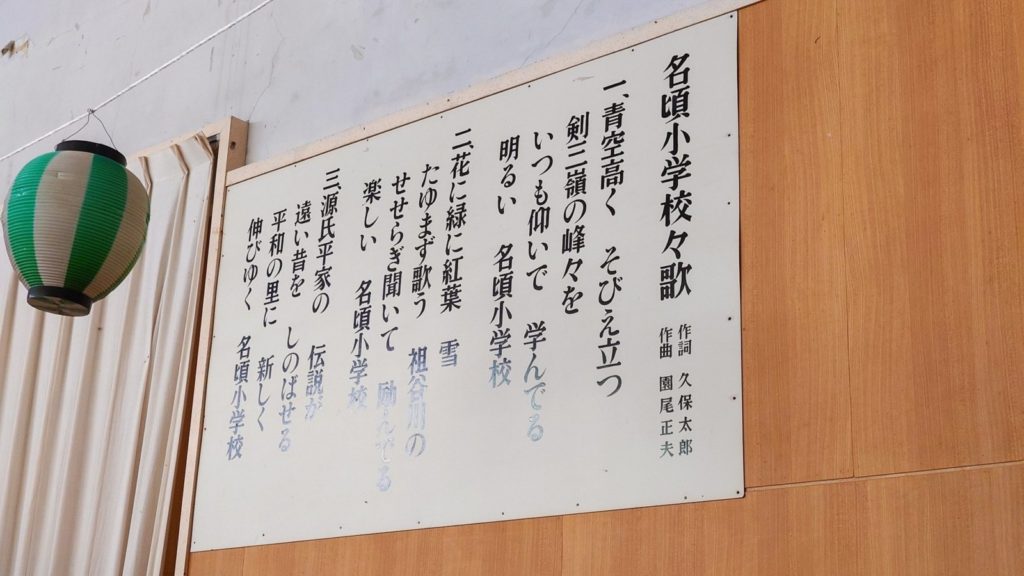 名頃小学校々歌
作詞 久保太郎
作曲 園尾正夫
一、青空高く そびえ立つ
剣三嶺の峰々を
いつも仰いで 学んでる
明るい 名頃小学校
二、花に緑に紅葉 雪
たゆまず歌う 祖谷川の
せせらぎ聞いて 励んでる
楽しい 名頃小学校
三、源氏平家の 伝説が
遠い昔を しのばせる
平和の里に 新しく
伸びゆく 名頃小学校